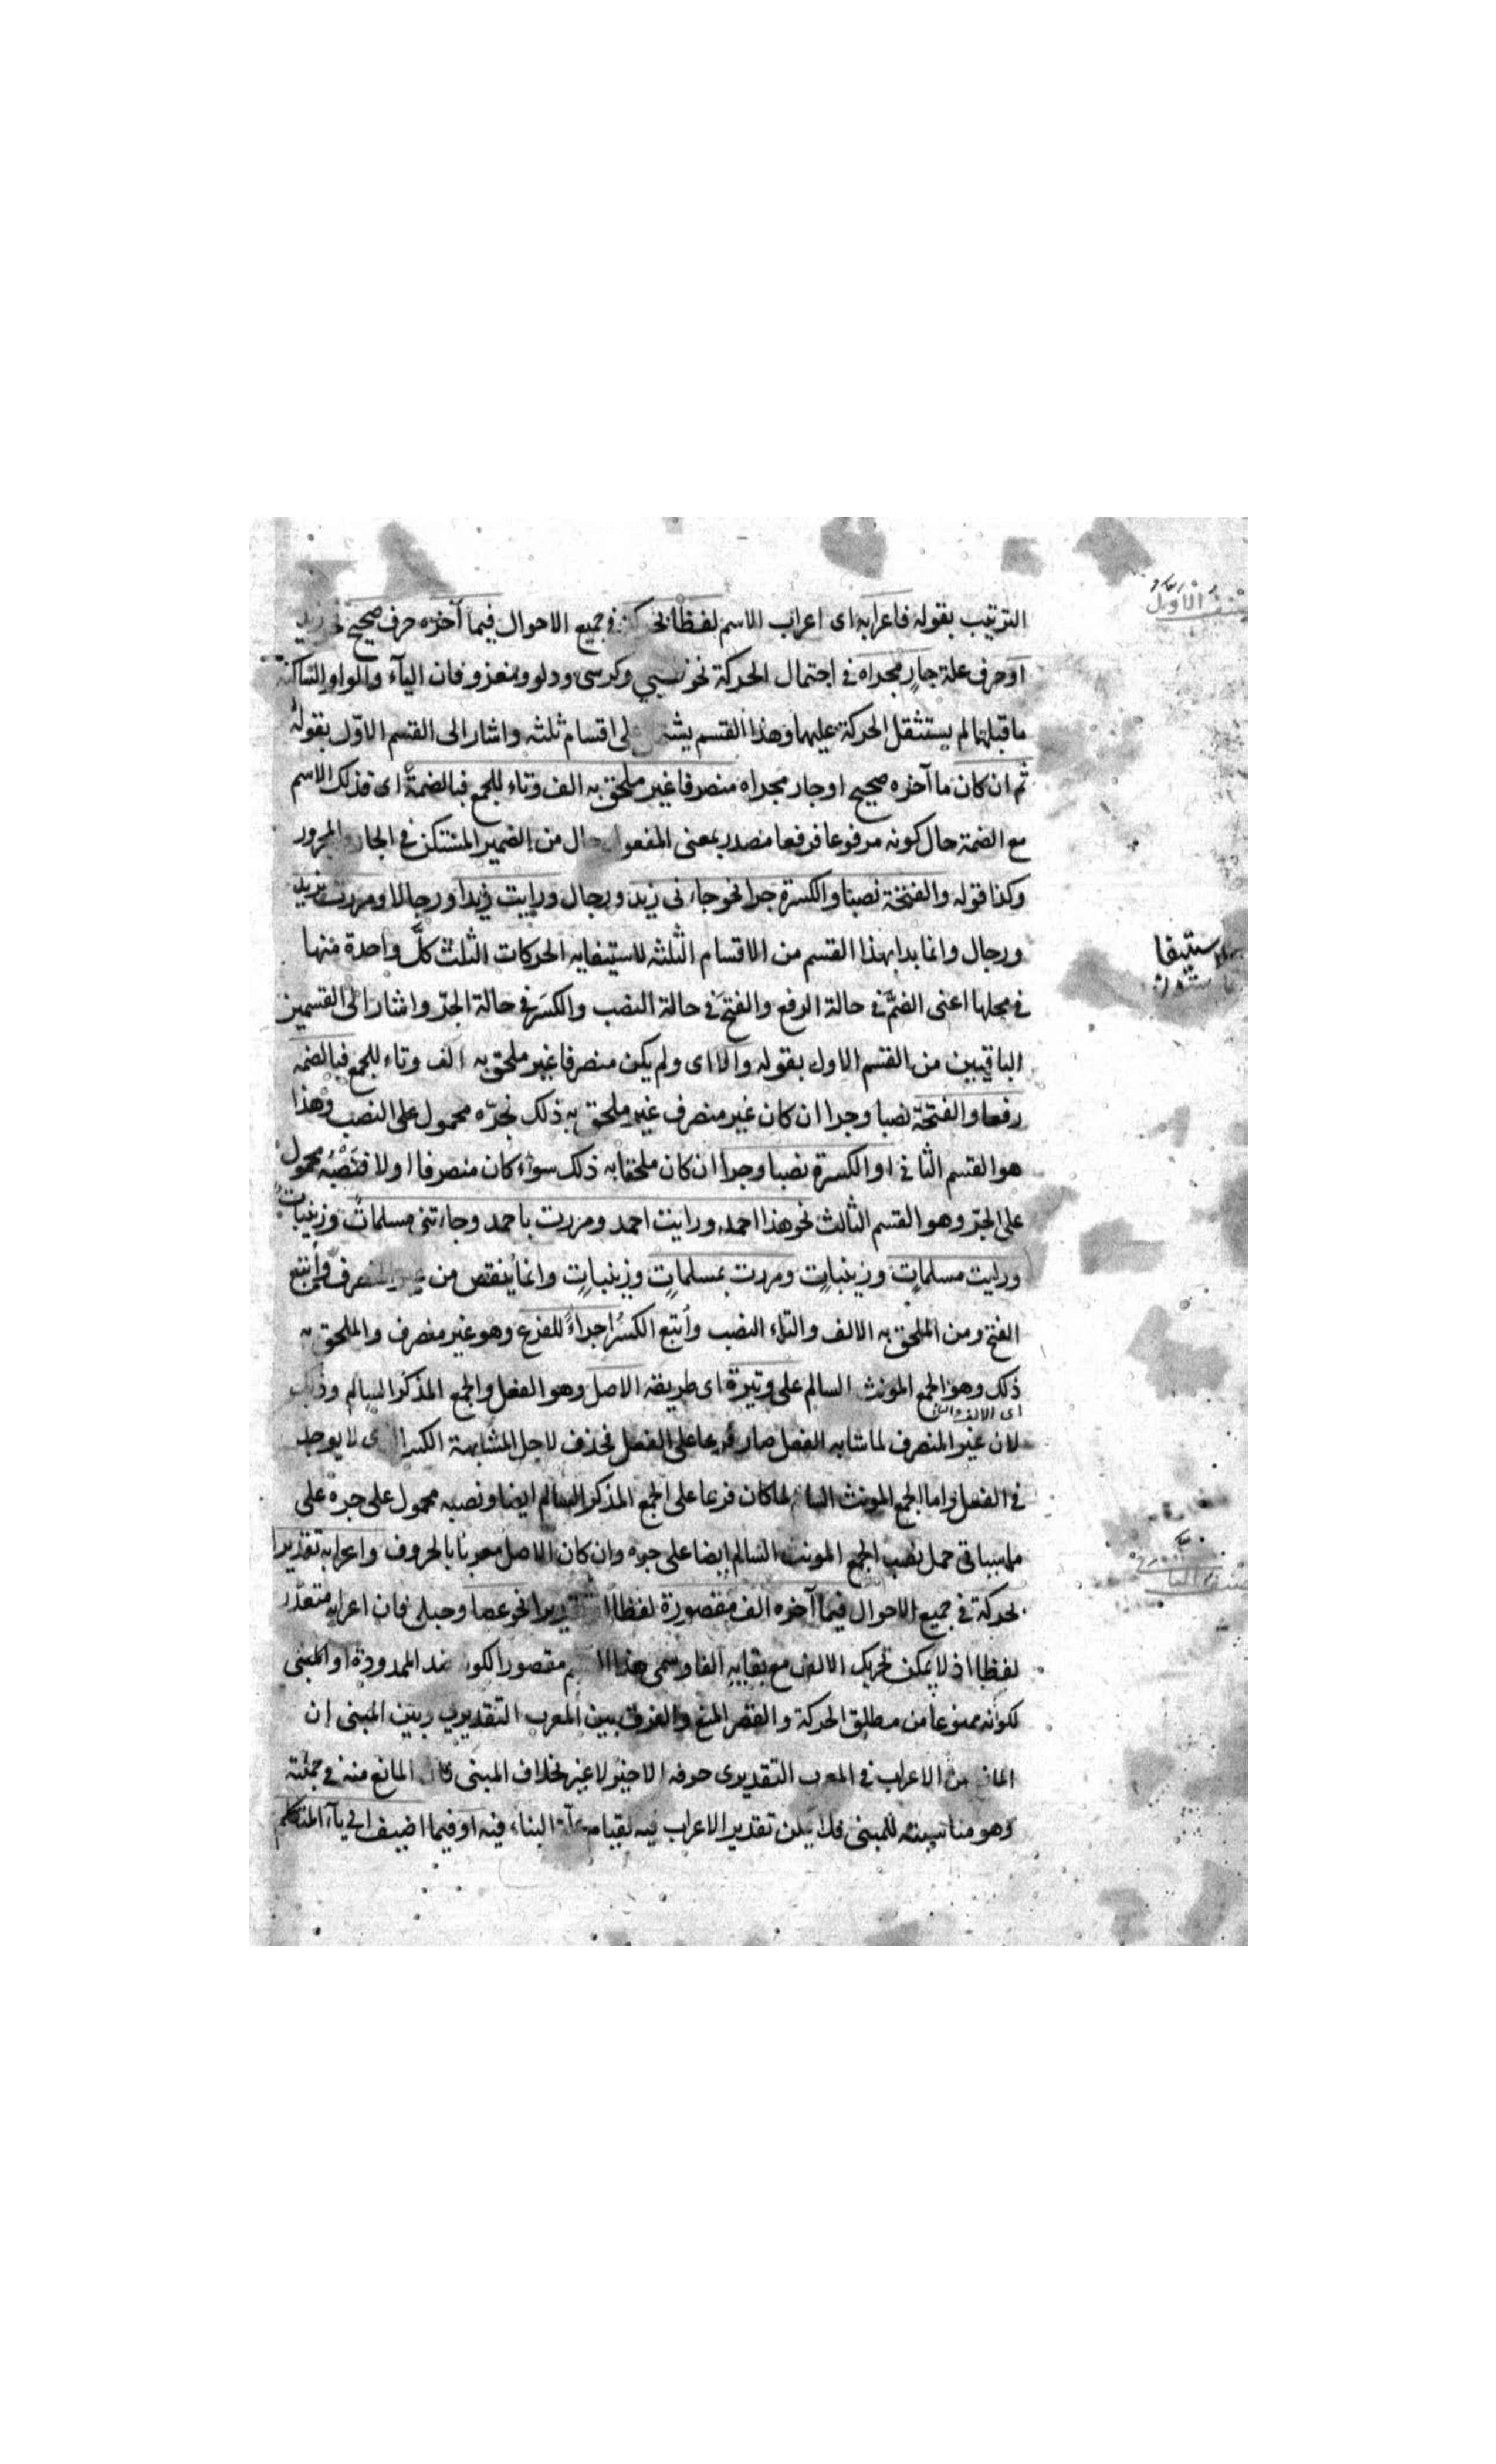 الترتيب بقوله فاعرابه اى اعراب الاسم لفظا بحركة فى جميع الاحوال فيما آخره حرف صحيح نحو زيد
او حرف علة جارٍ مجراه فى احتمال الحركة نحو ظبي وكرسى ودلو ومغزو فان اليآء والواو الساكنة
ما قبلهما لم يستثقل الحركة عليهما وهذا القسم يشتمل على اقسام ثلثه واشار الى القسم الاوّل بقوله
ثم ان كان ما آخره صحيح او جار مجراه منصرفا غير ملحق به الف وتاء للجمع فبالضمة اى فذلك الاسم
مع الضمة حال كونه مرفوعا فرفعا مصدر بمعنى المفعول حال من الضمير المستكن فى الجار والمجرور
وكذا قوله والفتحة نصبا والكسرة جرا نحو جاءنى زيد ورجال ورايت زيدا ورجالا ومررت بزيد
ورجال وانما بدا بهذا القسم من الاقسام الثلثه لاستيفايه الحركات الثلث كلَّ واحدة منها
فى محلها اعنى الضمَّ فى حالة الرفع والفتحَ فى حالة النصب والكسرَ فى حالة الجرّ واشار الى القسمين
الباقيين من القسم الاول بقوله والا اى ولم يكن منصرفا غير ملحق به الف وتاء للجمع فبالضمه
رفعا والفتحة نصبا وجرا ان كان غير منصرف غير ملحق به ذلك فجرّه محمول على النصب وهذا
هو القسم الثانى او الكسرة نصبا وجرا ان كان ملحقا به ذلك سوآء كان منصرفا اولا فنصبُه محمول
على الجرّ وهو القسم الثالث نحو هذا احمد ورايت احمد ومررت باحمد وجاءتنى مسلماتٌ وزينباتٌ
ورايت مسلماتٍ وزينباتٍ ومررت بمسلماتٍ وزينباتٍ وانما ينقص من غير المنصرف وأتبع
الفتح ومن الملحق به الالف والتاء النصب وأتبع الكسرُ اجراءً للفرع وهو غير منصرف والملحق به
ذلك وهو الجمع المونث السالم على وتيرة اى طريقة الاصل وهو الفعل والجمع المذكر السالم وذلك
اى الالف والتاء
لان غير المنصرف لما شابه الفعل صار فرعا على الفعل فحذف لاجل المشابهة الكسر الذى لا يوجد
فى الفعل واما الجمع المونث السالم لما كان فرعا على الجمع المذكر السالم ايضا ونصبه محمول على جره على
ما سياتى حمل نصب الجمع المونث السالم ايضا على جره وان كان الاصل معربا بالحروف واعرابه تقديرا
بحركة فى جميع الاحوال فيما آخره الف مقصورة لفظا او تقديرا نحو عصا وحبلى فان اعرابه متعذر
لفظا اذ لا يمكن تحريك الالف مع بقايه الفا وسمى هذا الاسم مقصورا لكونه ضد الممدودة او المبنى
لكونه ممنوعا من مطلق الحركة والقصر المنع والفرق بين المعرب التقديرى وبين المبنى إن
المانع من الاعراب فى المعرب التقديرى حرفه الاخير لا غير بخلاف المبنى فان المانع منه فى جملته
وهو مناسبته للمبنى فلا يمكن تقدير الاعراب فيه لقيام علة البناء فيه او فيما اضيف الى يآء المتكلم
الاول
لاستيفا